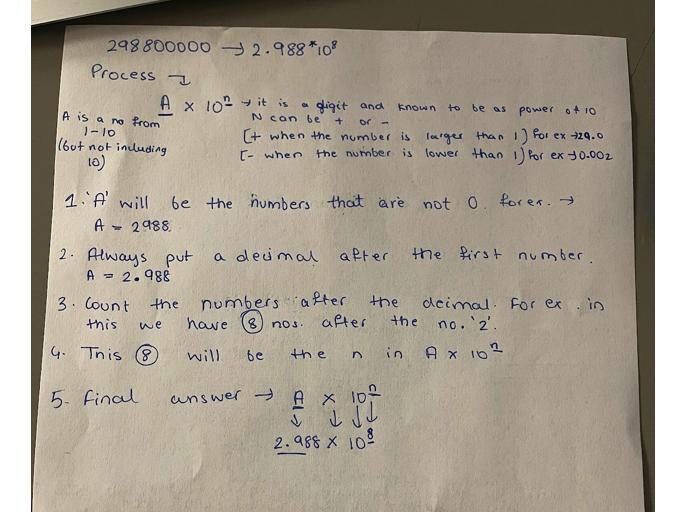 298800000 → 2.988*10⁸
Process →
A × 10ⁿ → it is a digit and known to be as power of 10
A is a no from
1-10
(but not including
10)
N can be + or -
[+ when the number is larger than 1) for ex → 29.0
[- when the number is lower than 1) for ex → 0.002
1. 'A' will be the numbers that are not 0. for ex. →
A = 2988
2. Always put a decimal after the first number.
A = 2.988
3. Count the numbers after the decimal. For ex. in
this we have 8 nos. after the no. '2'.
4. This 8 will be the n in A × 10ⁿ
5. Final answer → A × 10ⁿ
2.988 × 10⁸